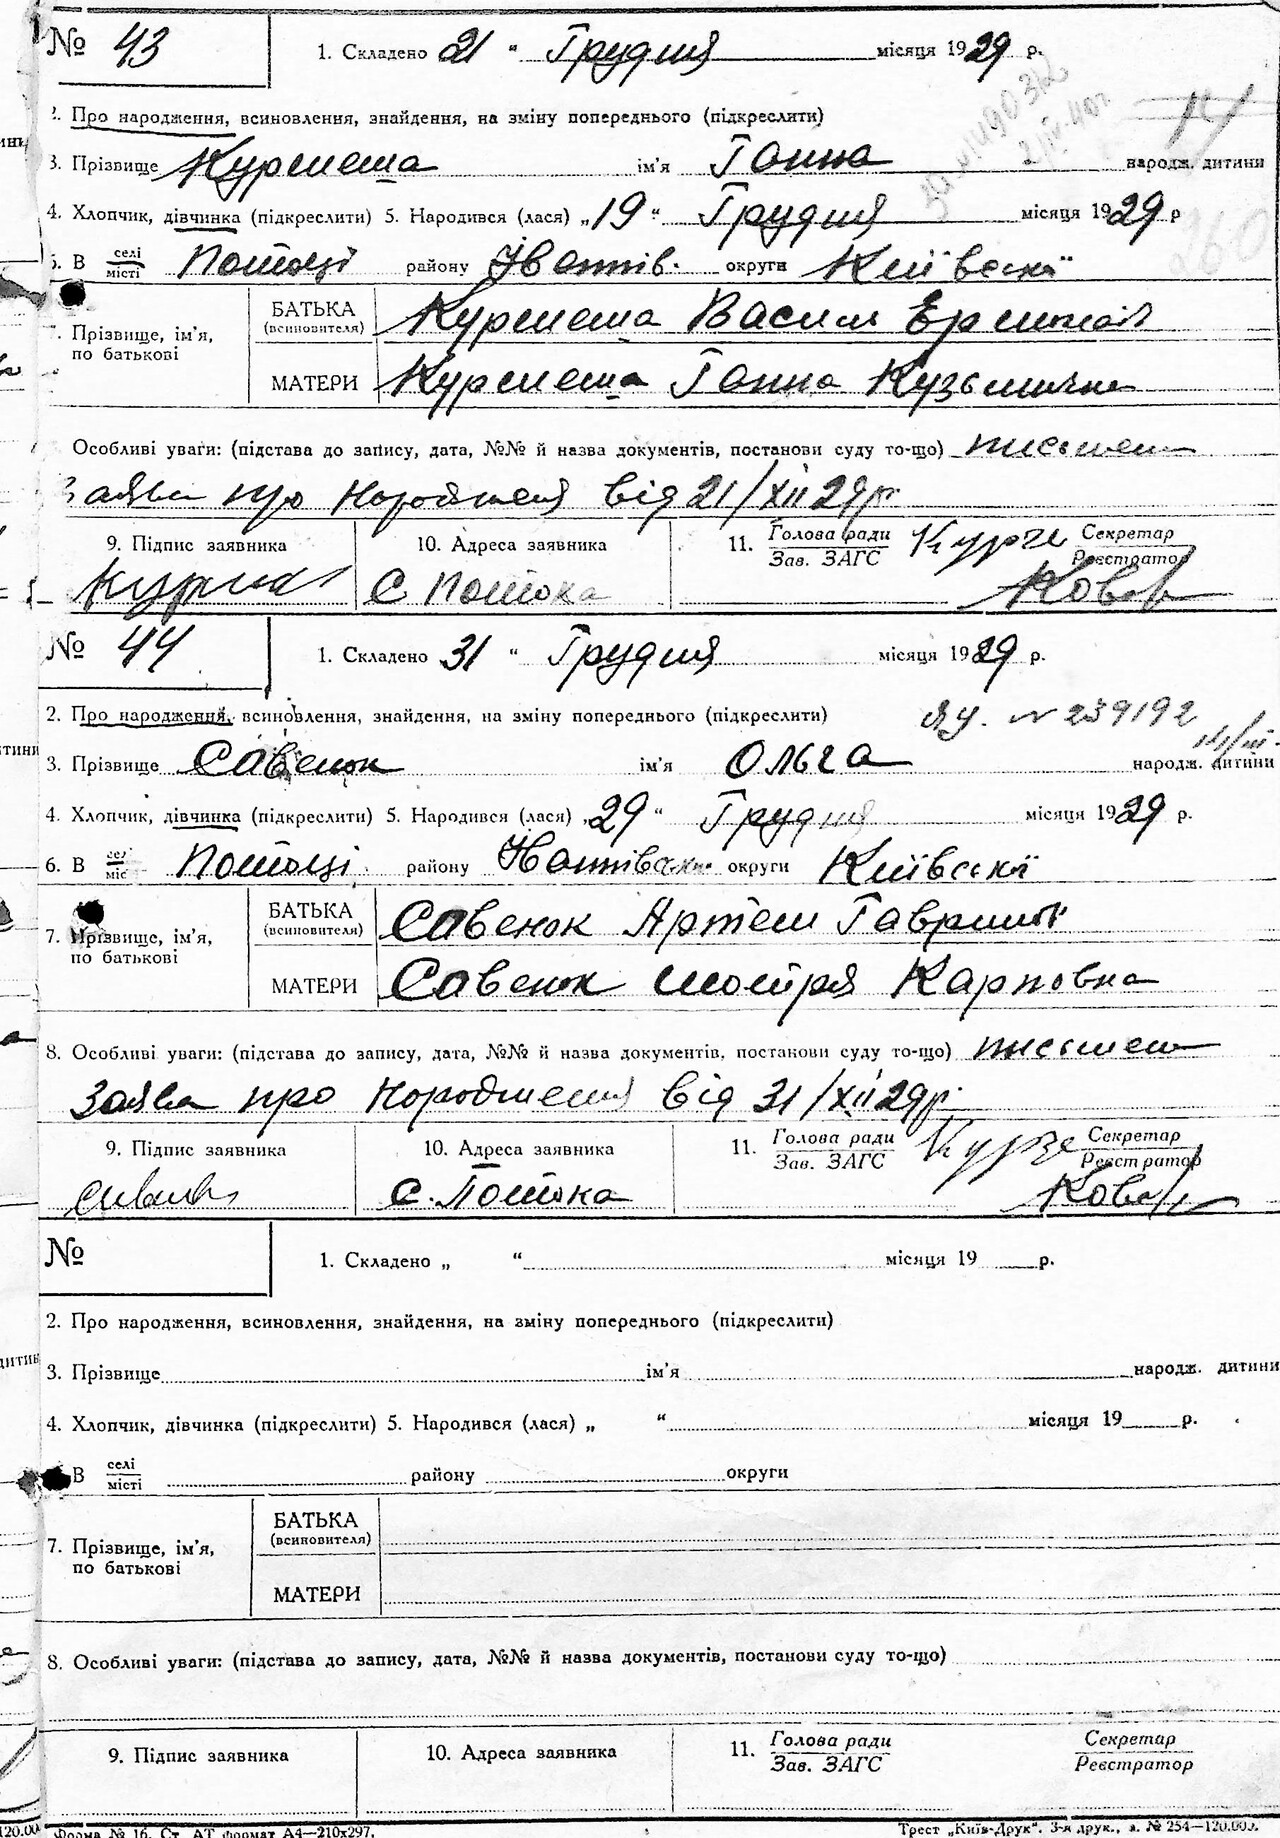 № 43
1. Складено 21 " Грудня місяця 1929 р.
2. Про народження, всиновлення, знайдення, на зміну попереднього (підкреслити)
3. Прізвище Курмеша ім'я Ганна народж. дитини
4. Хлопчик, дівчинка (підкреслити) 5. Народився (лася) „19" Грудня місяця 1929 р
6. В селі/місті Потоці району округи Київської
7. Прізвище, ім'я, по батькові
БАТЬКА (всиновителя) Курмеша Васил
МАТЕРИ Курмеша Ганна Кузьмична
Особливі уваги: (підстава до запису, дата, №№ й назва документів, постанови суду то-що) письмен
Заява про народження від 21/XII 29 р.
9. Підпис заявника
10. Адреса заявника
11. Голова ради/Зав. ЗАГС
Секретар/Реєстратор
С Потока
№ 44
1. Складено 31 " Грудня місяця 1929 р.
2. Про народження, всиновлення, знайдення, на зміну попереднього (підкреслити) № 239192
3. Прізвище Савенок ім'я Ольга народж. дитини
4. Хлопчик, дівчинка (підкреслити) 5. Народився (лася) „29" Грудня місяця 1929 р.
6. В селі/місті Потоці району округи Київської
7. Прізвище, ім'я, по батькові
БАТЬКА (всиновителя) Савенок Артем
МАТЕРИ Савенок Карповна
8. Особливі уваги: (підстава до запису, дата, №№ й назва документів, постанови суду то-що) письмен
Заява про народження від 31/XII 29 р.
9. Підпис заявника
10. Адреса заявника
11. Голова ради/Зав. ЗАГС
Секретар/Реєстратор
С. Потока
№
1. Складено „ " місяця 19 р.
2. Про народження, всиновлення, знайдення, на зміну попереднього (підкреслити)
3. Прізвище ім'я народж. дитини
4. Хлопчик, дівчинка (підкреслити) 5. Народився (лася) „ " місяця 19 р.
В селі/місті району округи
7. Прізвище, ім'я, по батькові
БАТЬКА (всиновителя)
МАТЕРИ
8. Особливі уваги: (підстава до запису, дата, №№ й назва документів, постанови суду то-що)
9. Підпис заявника
10. Адреса заявника
11. Голова ради/Зав. ЗАГС
Секретар/Реєстратор
Форма № 16. Ст. АТ формат А4—210х297.
Трест „Київ-Друк". 3-я друк., з. № 254—120.000.